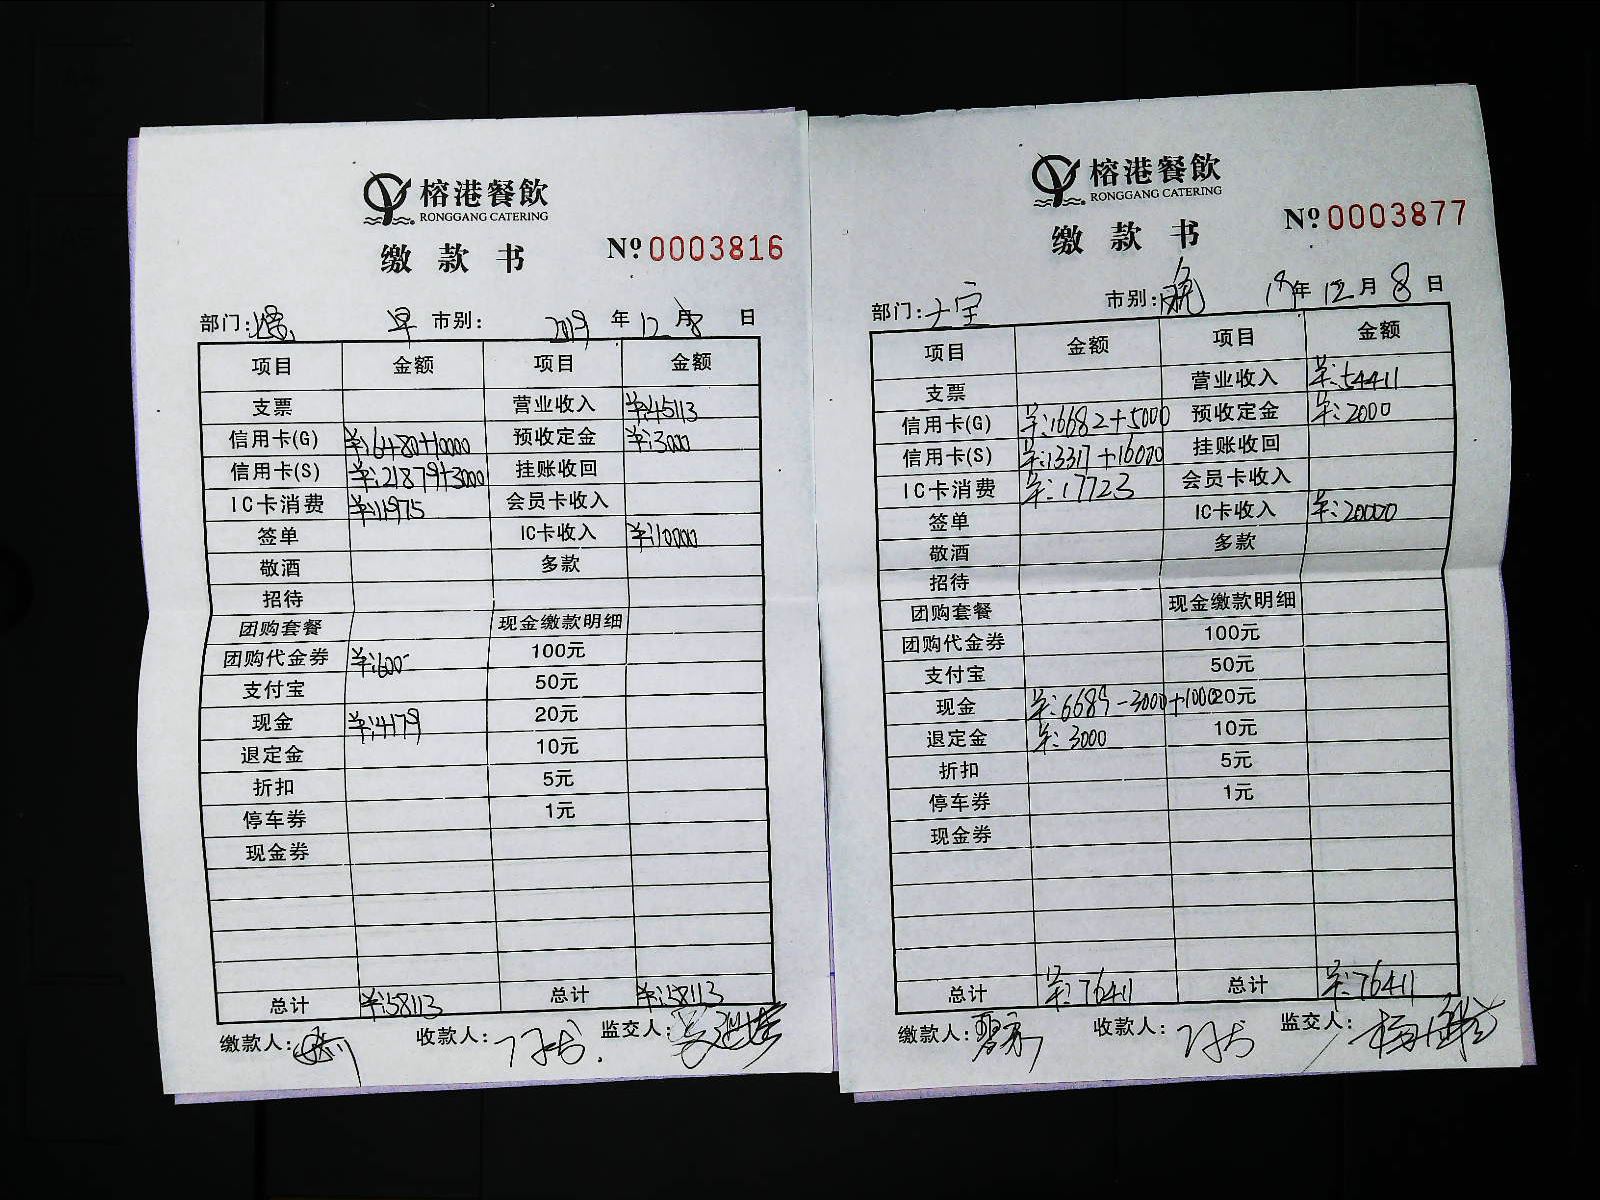 榕港餐飲
RONGGANG CATERING
缴款书
№ 0003816
部门: 早 市别: 2019 年 12 月 8 日
项目 金额 项目 金额
支票 营业收入 ¥:45113
信用卡(G) ¥:6480+10000 预收定金 ¥:3000
信用卡(S) ¥:21879+3000 挂账收回
IC卡消费 ¥:11975 会员卡收入
签单 IC卡收入 ¥:10000
敬酒 多款
招待
团购套餐 现金缴款明细
团购代金券 ¥:600- 100元
支付宝 50元
现金 ¥:4179 20元
退定金 10元
折扣 5元
停车券 1元
现金券
总计 ¥:58113 总计 ¥:58113
缴款人: 收款人: 监交人:
榕港餐飲
RONGGANG CATERING
缴款书
№ 0003877
部门:大宝 市别:晚 19年 12月 8日
项目 金额 项目 金额
支票 营业收入 ¥:54411
信用卡(G) ¥:16682+5000 预收定金 ¥:2000
信用卡(S) ¥:13317+16000 挂账收回
IC卡消费 ¥:17723 会员卡收入
签单 IC卡收入 ¥:20000
敬酒 多款
招待
团购套餐 现金缴款明细
团购代金券 100元
支付宝 50元
现金 ¥:6689-3000+1000 20元
退定金 ¥:3000 10元
折扣 5元
停车券 1元
现金券
总计 ¥:76411 总计 ¥:76411
缴款人: 收款人: 监交人: